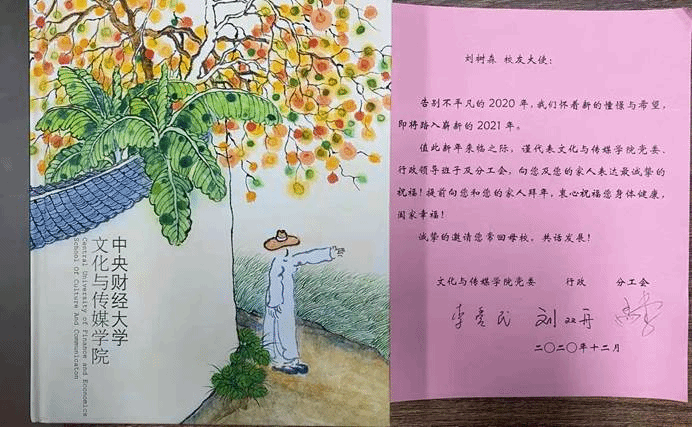 中央财经大学
文化与传媒学院
Central University of Finance and Economics
School Of Culture And Communicaton
刘树森 校友大使：
告别不平凡的 2020 年，我们怀着新的憧憬与希望，
即将踏入崭新的 2021 年。
值此新年来临之际，谨代表文化与传媒学院党委、
行政领导班子及分工会，向您及您的家人表达最诚挚的
祝福！提前向您和您的家人拜年，衷心祝福您身体健康，
阖家幸福！
诚挚的邀请您常回母校，共话发展！
文化与传媒学院党委 行政 分工会
李爱民 刘双舟
二〇二〇年十二月